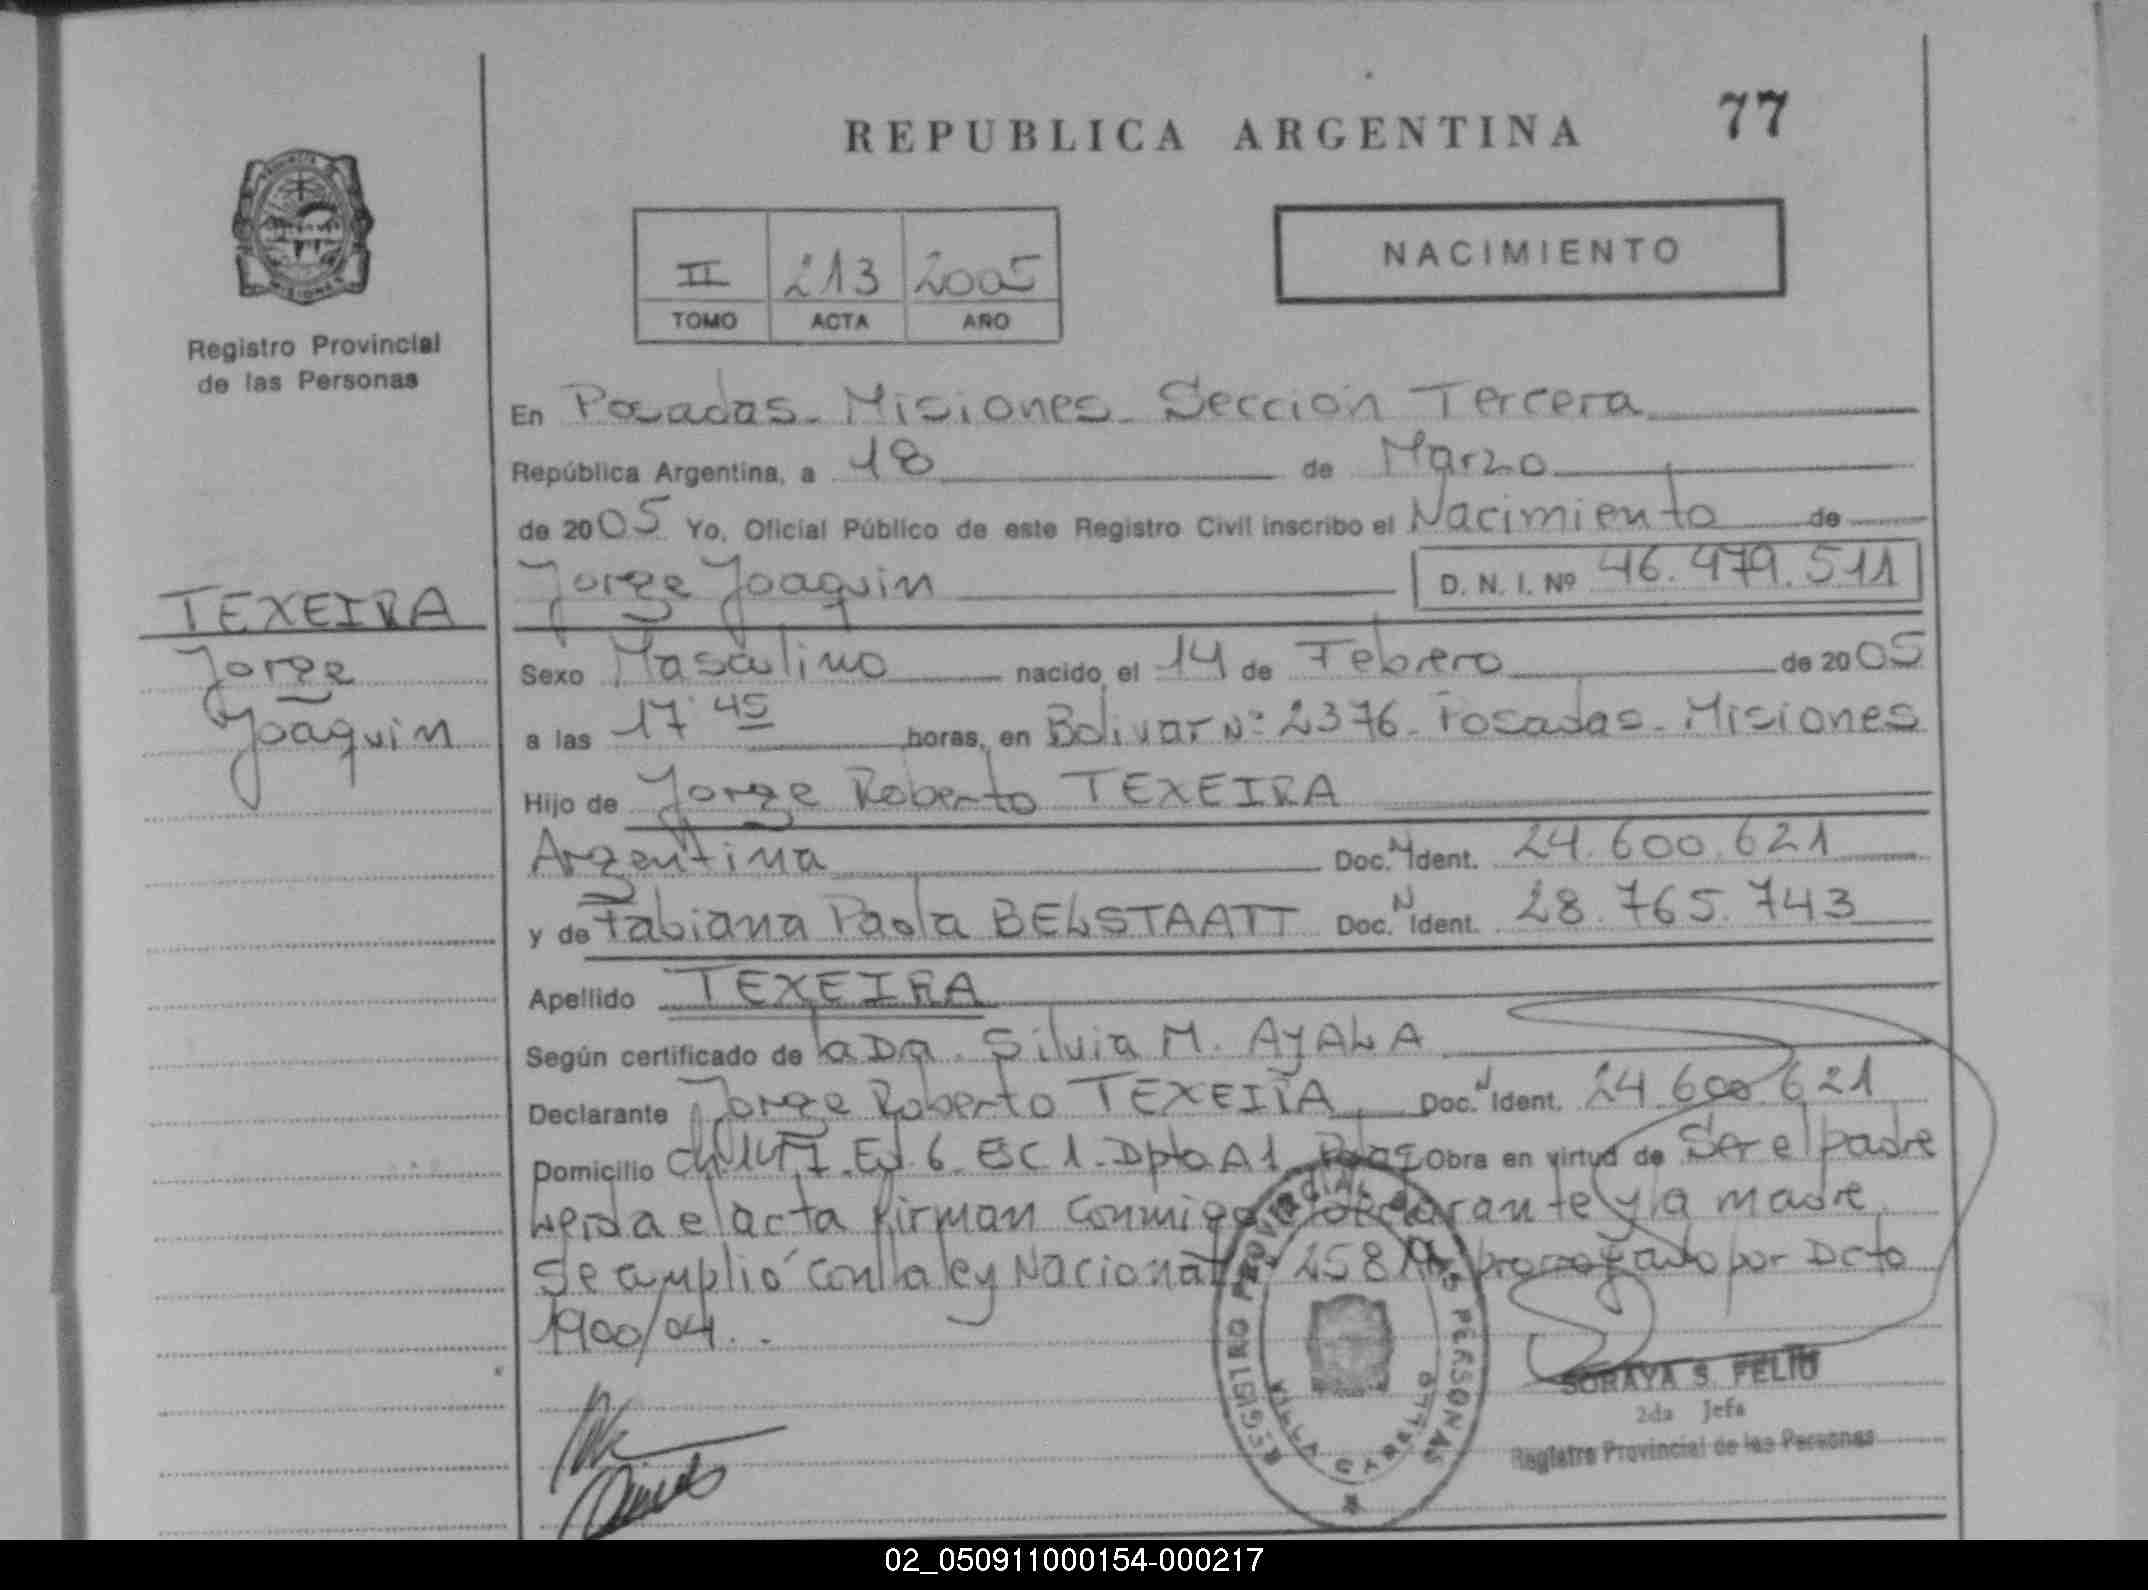 REPUBLICA ARGENTINA
77
NACIMIENTO
II 213 2005
TOMO ACTA AÑO
Registro Provincial
de las Personas
TEXEIRA
Jorge
Joaquin
En Posadas - Misiones - Sección Tercera
República Argentina, a 18 de Marzo
de 2005 Yo, Oficial Público de este Registro Civil inscribo el Nacimiento de
Jorge Joaquin D. N. I. Nº 46.479.511
Sexo Masculino nacido el 14 de Febrero de 2005
a las 17 45 horas, en Bolivar Nº 2376 - Posadas - Misiones
Hijo de Jorge Roberto TEXEIRA
Argentina Doc. N Ident. 24.600.621
y de Fabiana Paola BELSTAATT Doc. N Ident. 28.765.743
Apellido TEXEIRA
Según certificado de la Da. Silvia M. AYALA
Declarante Jorge Roberto TEXEIRA Doc. N Ident. 24.600.621
Domicilio Ed. 6 ESC 1 - Dpto A1 Obra en virtud de Ser el padre
Leida el acta firman conmigo declarante y la madre
Se amplió con la ley Nacional prorrogado por Dcto
1900/04..
REGISTRO PROVINCIAL DE LAS PERSONAS
VILLA
SORAYA S. FELIU
2da Jefa
Registro Provincial de las Personas
02_050911000154-000217